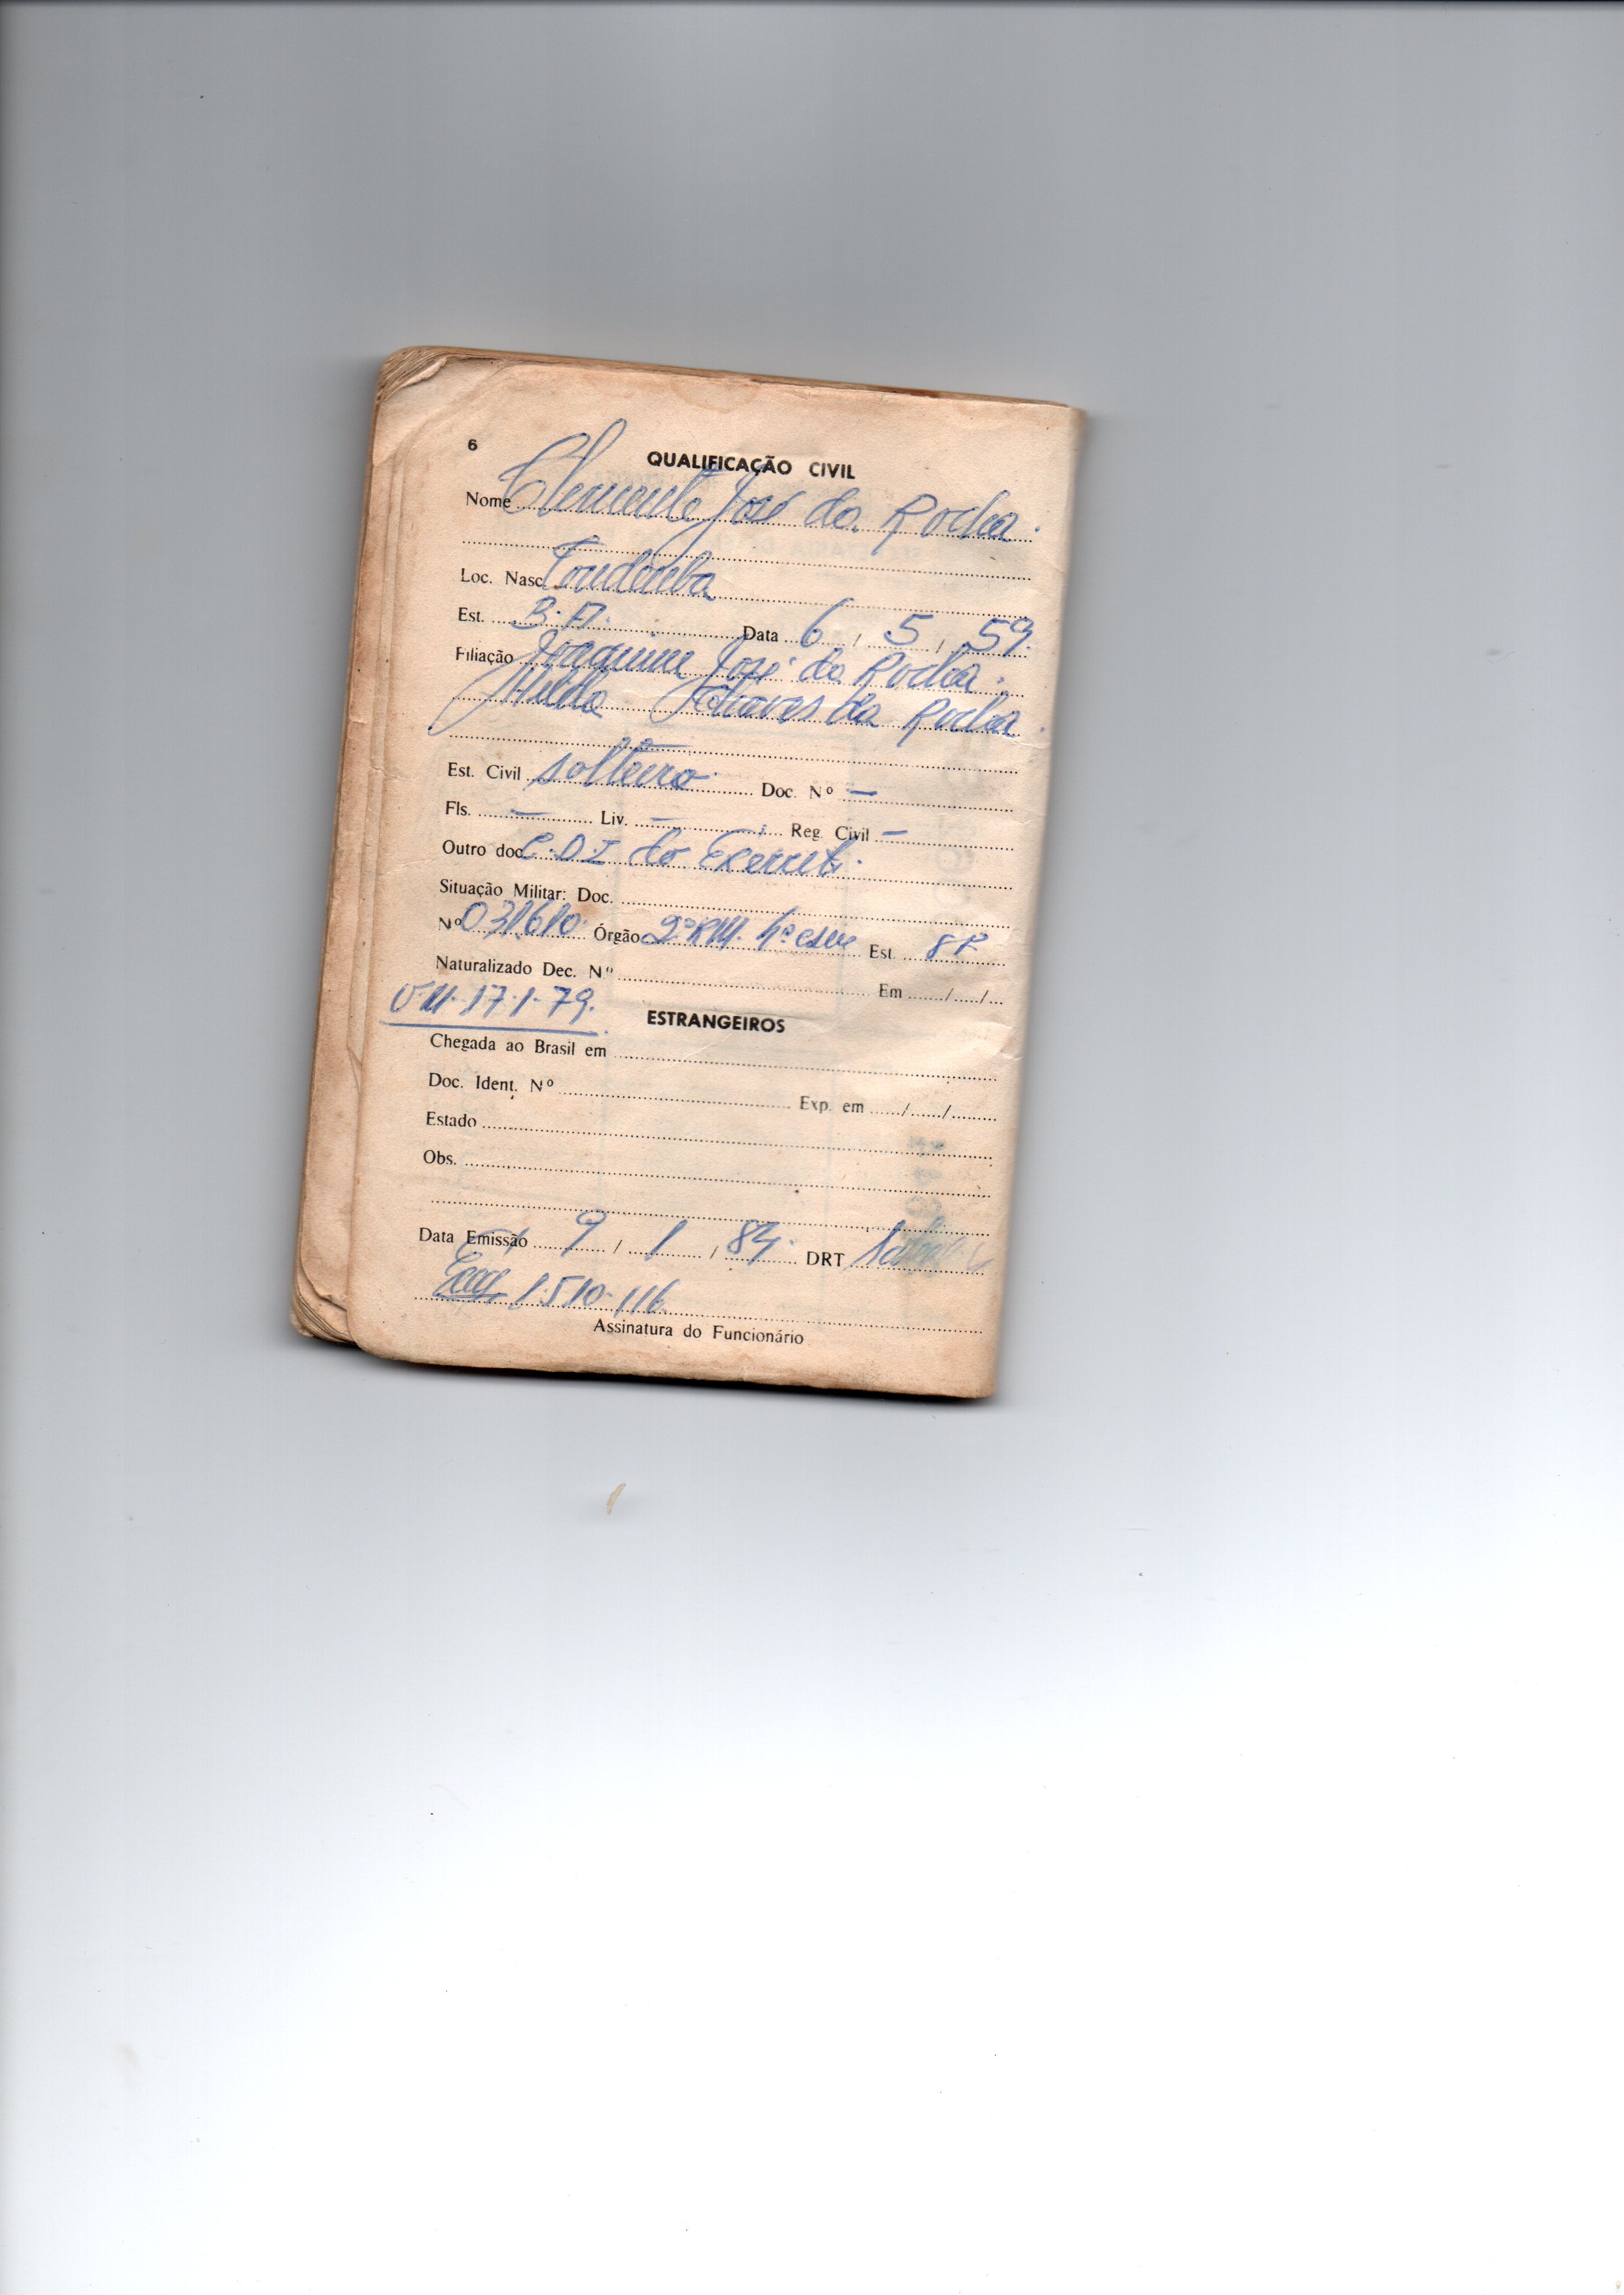 6
QUALIFICAÇÃO CIVIL
Nome Clemente José da Rocha.
Loc. Nasc. Condeuba
Est. B.A. Data 6 / 5 / 59.
Filiação Joaquim José da Rocha.
Hilda Chaves da Rocha.
Est. Civil solteiro. Doc. Nº —
Fls. — Liv. — Reg. Civil —
Outro doc. C.D.I do Exercit.
Situação Militar: Doc.
Nº 031610. Órgão 2ª RM. 4ª Est. SP
Naturalizado Dec. Nº Em ....../...../...
17.1.79.
ESTRANGEIROS
Chegada ao Brasil em
Doc. Ident. Nº Exp. em ....../....../.........
Estado
Obs.
Data Emissão 9 / 1 / 84. DRT
1.510.116
Assinatura do Funcionário